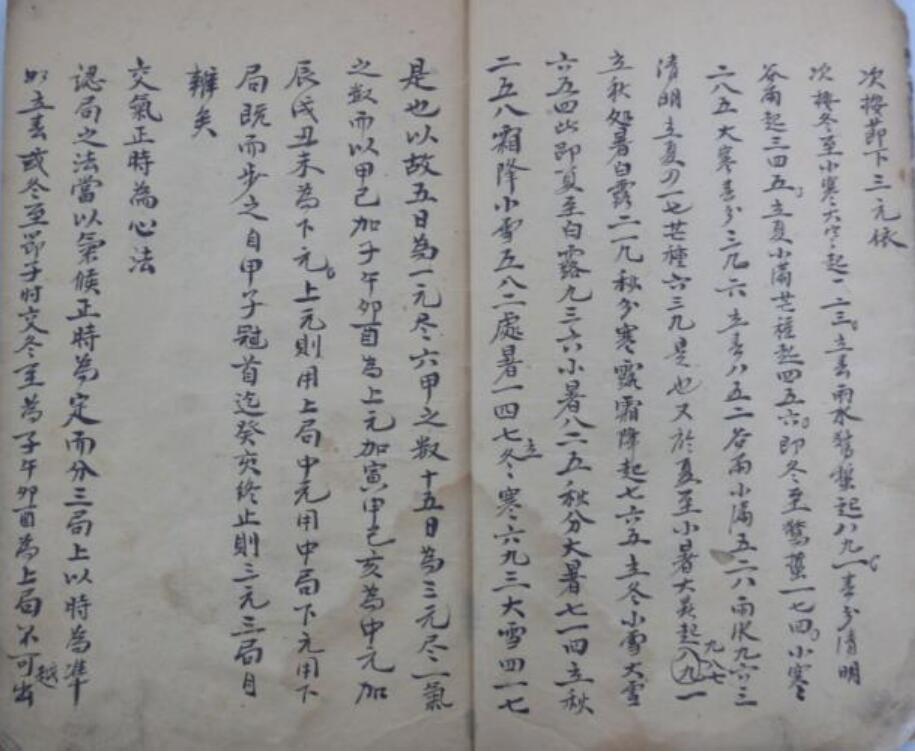 次按節下三元依
次接冬至小寒大寒起一二三立春雨水驚蟄起八九一春分清明
谷雨起三四五立夏小滿芒種起四五六即冬至驚蟄一七四小寒
二八五大寒春分三九六立春八五二谷雨小滿五二八雨水九六三
清明立夏四一七芒種六三九是也又於夏至小暑大暑起九八七
立秋処暑白露二一九秋分寒露霜降起七六五立冬小雪大雪
六五四此即夏至白露九三六小暑八二五秋分大暑七一四立秋
二五八霜降小雪五八二處暑一四七立冬寒六九三大雪四一七
是也以故五日為一元尽六甲之数十五日為三元尽一氣
之数而以甲己加子午卯酉為上元加寅申己亥為中元加
辰戌丑未為下元上元則用上局中元用中局下元用下
局既而步之自甲子冠首迄癸亥終止則三元三局自
辨矣
交氣正時為心法
認局之法當以氣候正時為定而分三局上以時為準
如立春或冬至節子时交冬至為子午卯酉為上局不可越出